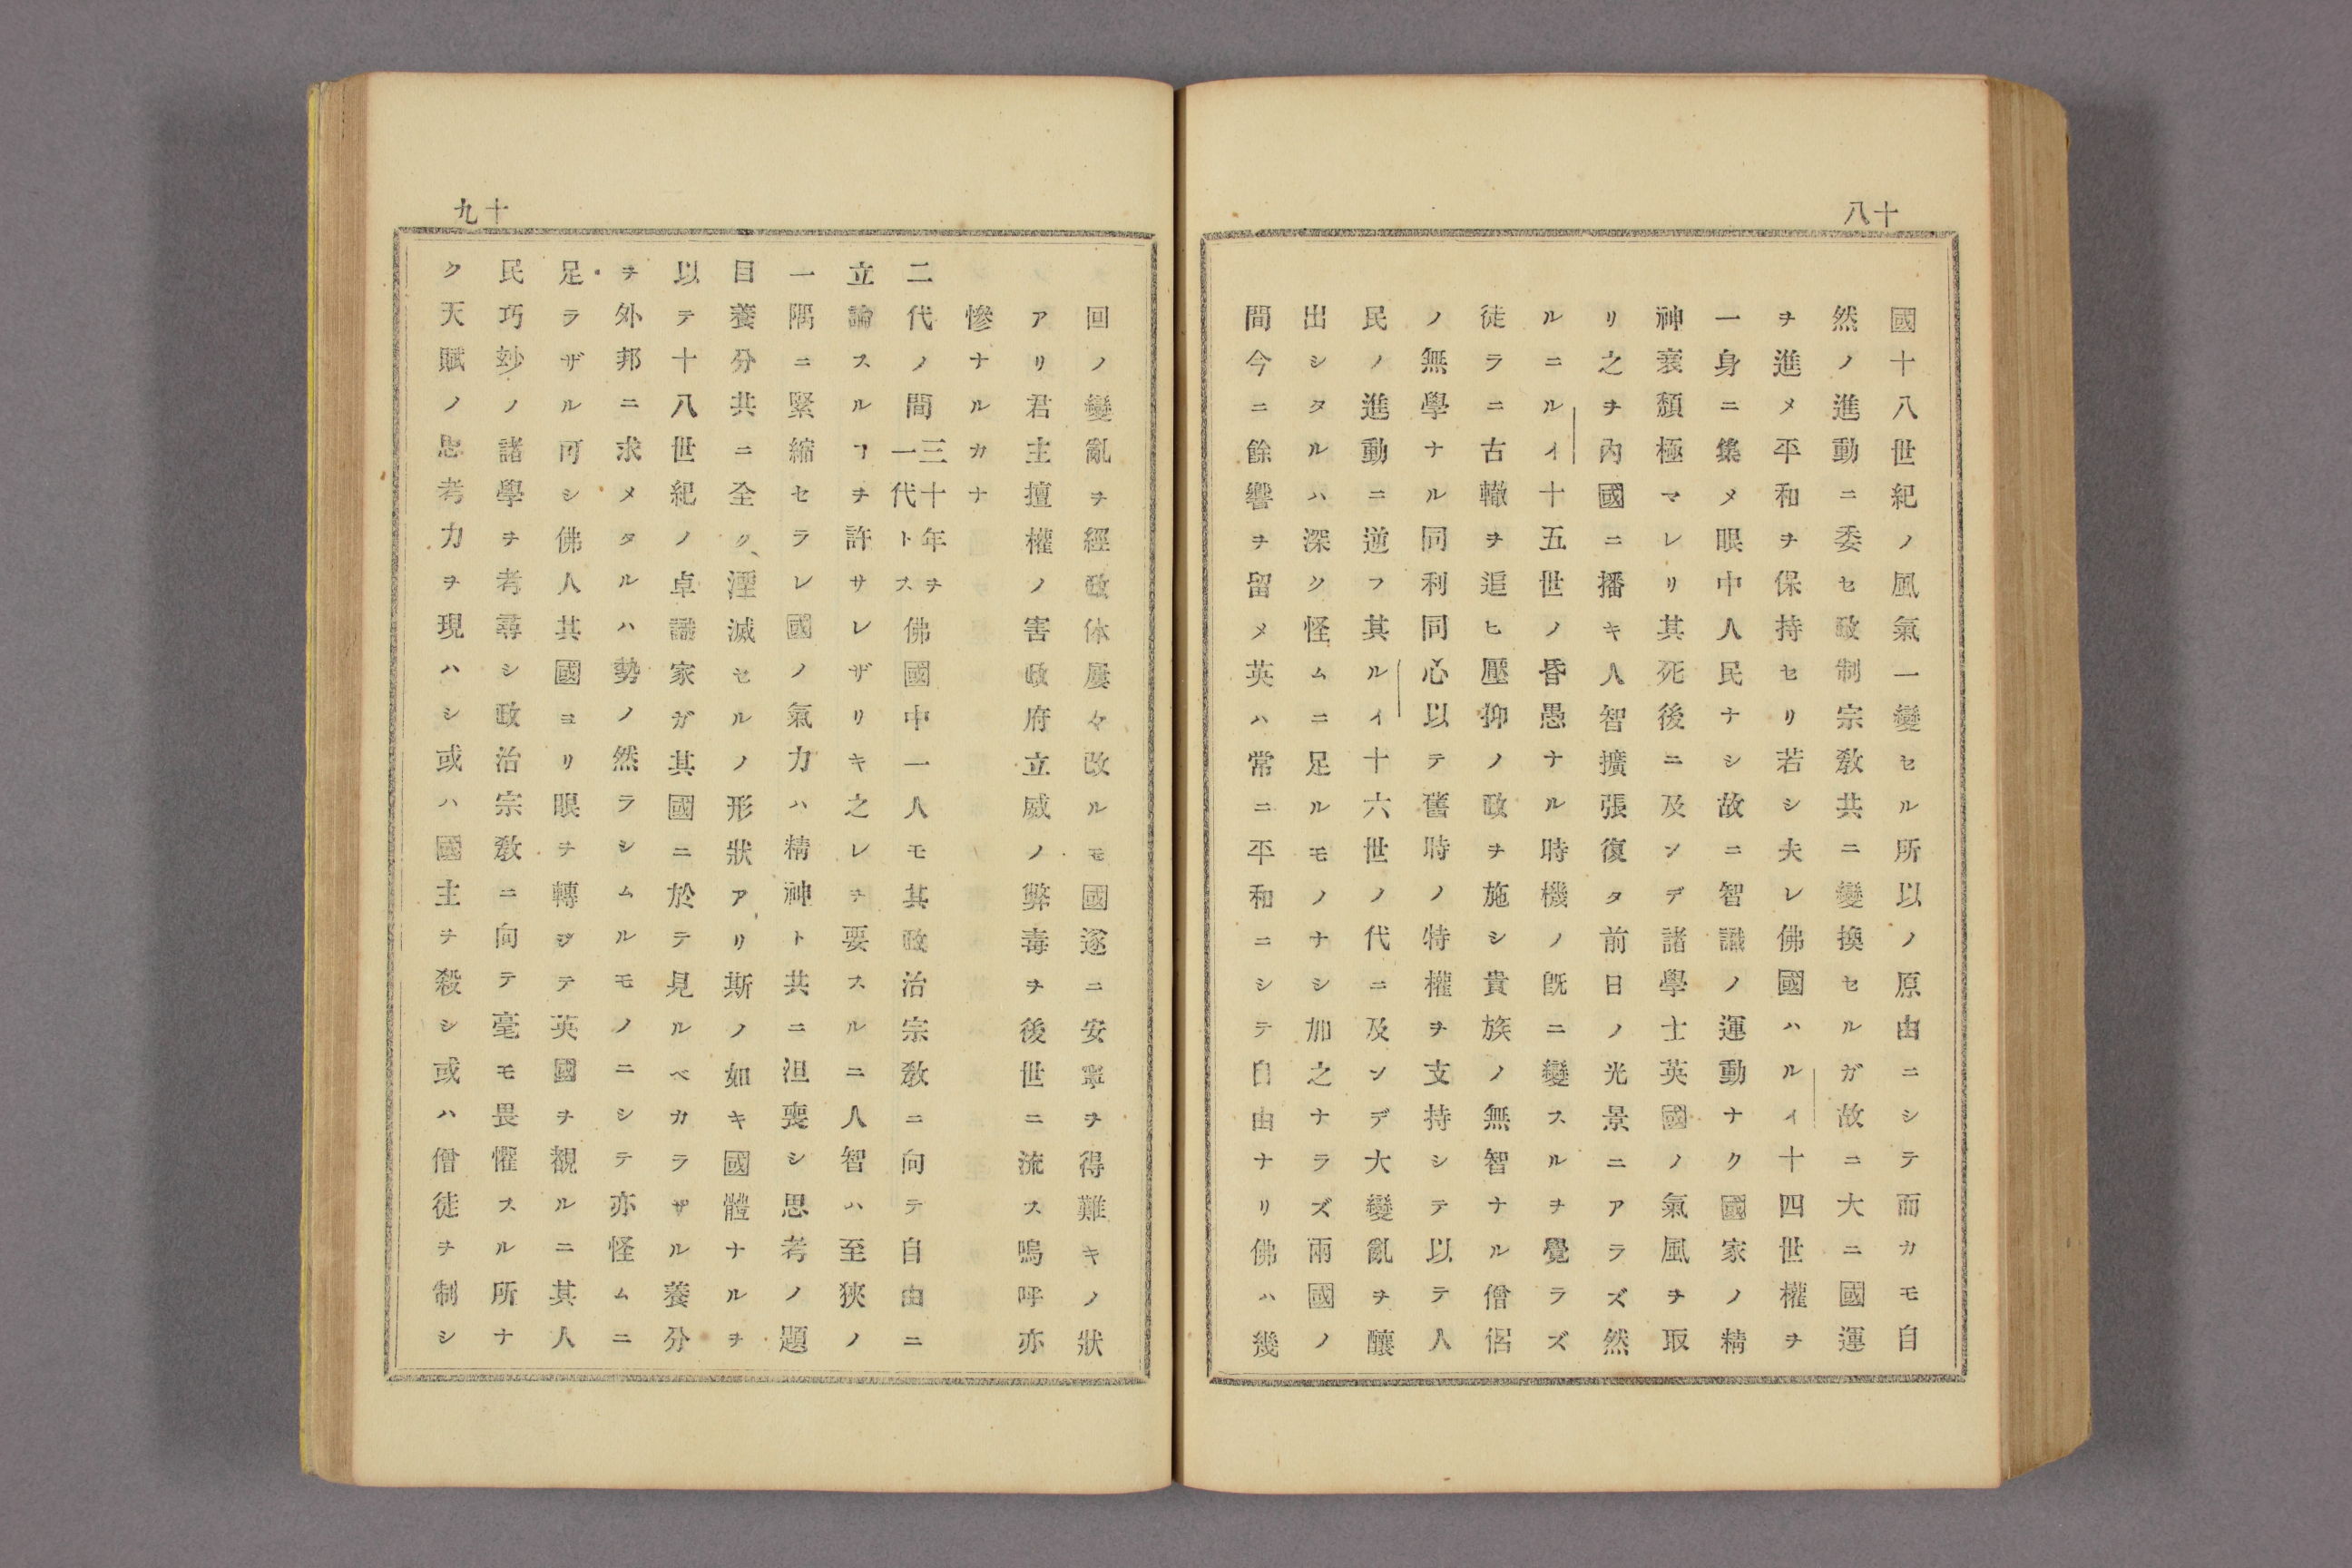 十八
國十八世紀ノ風氣一變セル所以ノ原由ニシテ而カモ自
然ノ進動ニ委セ政制宗敎共ニ變換セルガ故ニ大ニ國運
ヲ進メ平和ヲ保持セリ若シ夫レ佛國ハルイ十四世權ヲ
一身ニ集メ眼中人民ナシ故ニ智識ノ運動ナク國家ノ精
神衰頽極マレリ其死後ニ及ンデ諸學士英國ノ氣風ヲ取
リ之ヲ內國ニ播キ人智擴張復タ前日ノ光景ニアラズ然
ルニルイ十五世ノ昏愚ナル時機ノ旣ニ變スルヲ覺ラズ
徒ラニ古轍ヲ追ヒ壓抑ノ政ヲ施シ貴族ノ無智ナル僧侶
ノ無學ナル同利同心以テ舊時ノ特權ヲ支持シテ以テ人
民ノ進動ニ逆フ其ルイ十六世ノ代ニ及ンデ大變亂ヲ釀
出シタルハ深ク怪ムニ足ルモノナシ加之ナラズ兩國ノ
間今ニ餘響ヲ留メ英ハ常ニ平和ニシテ自由ナリ佛ハ幾
十九
回ノ變亂ヲ經政体屢々改ルモ國遂ニ安寧ヲ得難キノ狀
アリ君主擅權ノ害政府立威ノ弊毒ヲ後世ニ流ス嗚呼亦
慘ナルカナ
二代ノ間三十年ヲ一代トス佛國中一人モ其政治宗敎ニ向テ自由ニ
立論スルヿヲ許サレザリキ之レヲ要スルニ人智ハ至狹ノ
一隅ニ緊縮セラレ國ノ氣力ハ精神ト共ニ沮喪シ思考ノ題
目養分共ニ全ク湮滅セルノ形狀アリ斯ノ如キ國體ナルヲ
以テ十八世紀ノ卓識家ガ其國ニ於テ見ルベカラザル養分
ヲ外邦ニ求メタルハ勢ノ然ラシムルモノニシテ亦怪ムニ
足ラザル可シ佛人其國ヨリ眼ヲ轉ジテ英國ヲ觀ルニ其人
民巧玅ノ諸學ヲ考尋シ政治宗敎ニ向テ毫モ畏懼スル所ナ
ク天賦ノ思考力ヲ現ハシ或ハ國主ヲ殺シ或ハ僧徒ヲ制シ